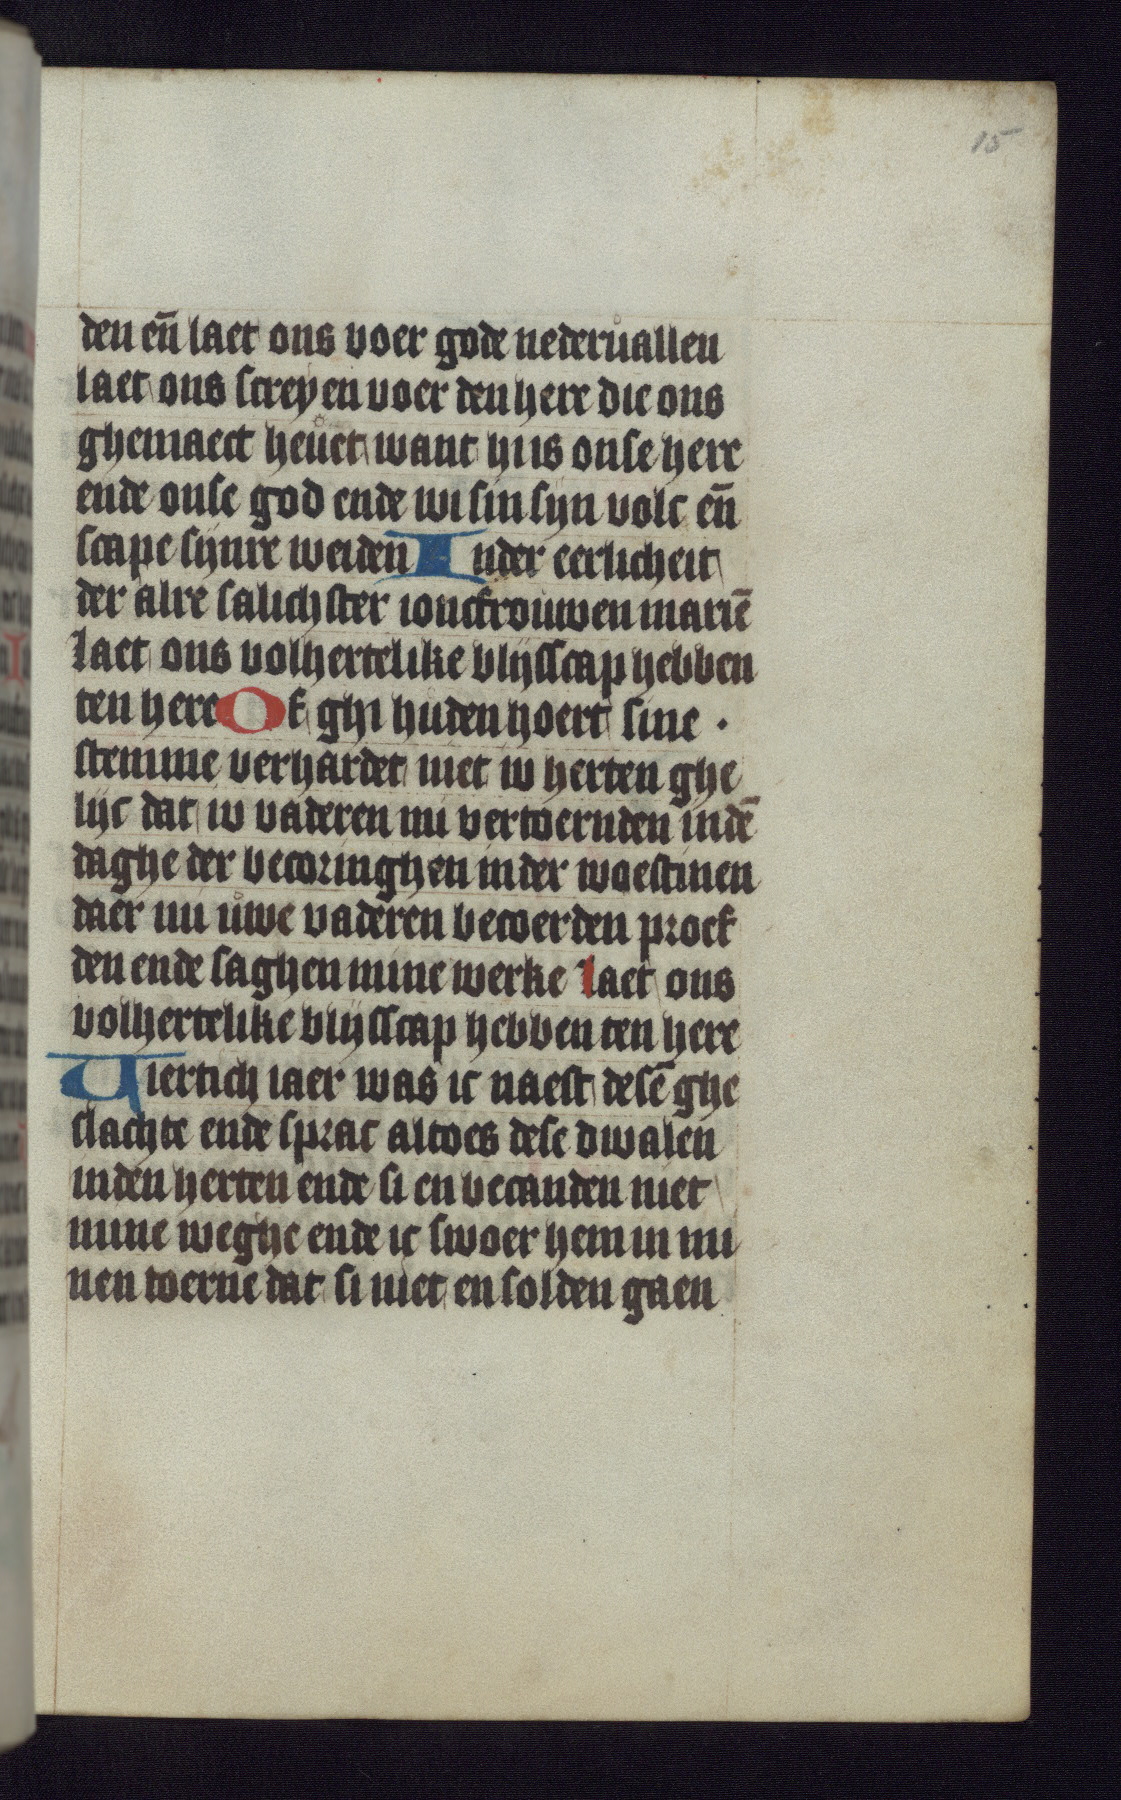 15
den en̄ laet ons voer gode nederůallen
laet ons screyen voer den here die ons
ghemaect heůet want hi is onse here
ende onse god ende wi sin sijn volc en̄
scape sijnre weiden In der eerlicheit
der alre salichster ioncfrouwen mariē
laet ons volhertelike blijsscap hebben
ten here Of ghi huden hoert sine ·
stemme verhardet niet iw herten ghe
lijc dat iw vaderen mi vertoernden in dē
daghe der becoringhen in der woestinen
daer mi ůwe vaderen becoerden proef
den ende saghen mine werke laet ons
volhertelike blijsscap hebben ten here
Viertich iaer was ic naest desē ghe
slachte ende sprac altoes dese dwalen
in den herten ende si en becanden niet
mine weghe ende ic swoer hem in mi
nen toerne dat si niet en solden gaen